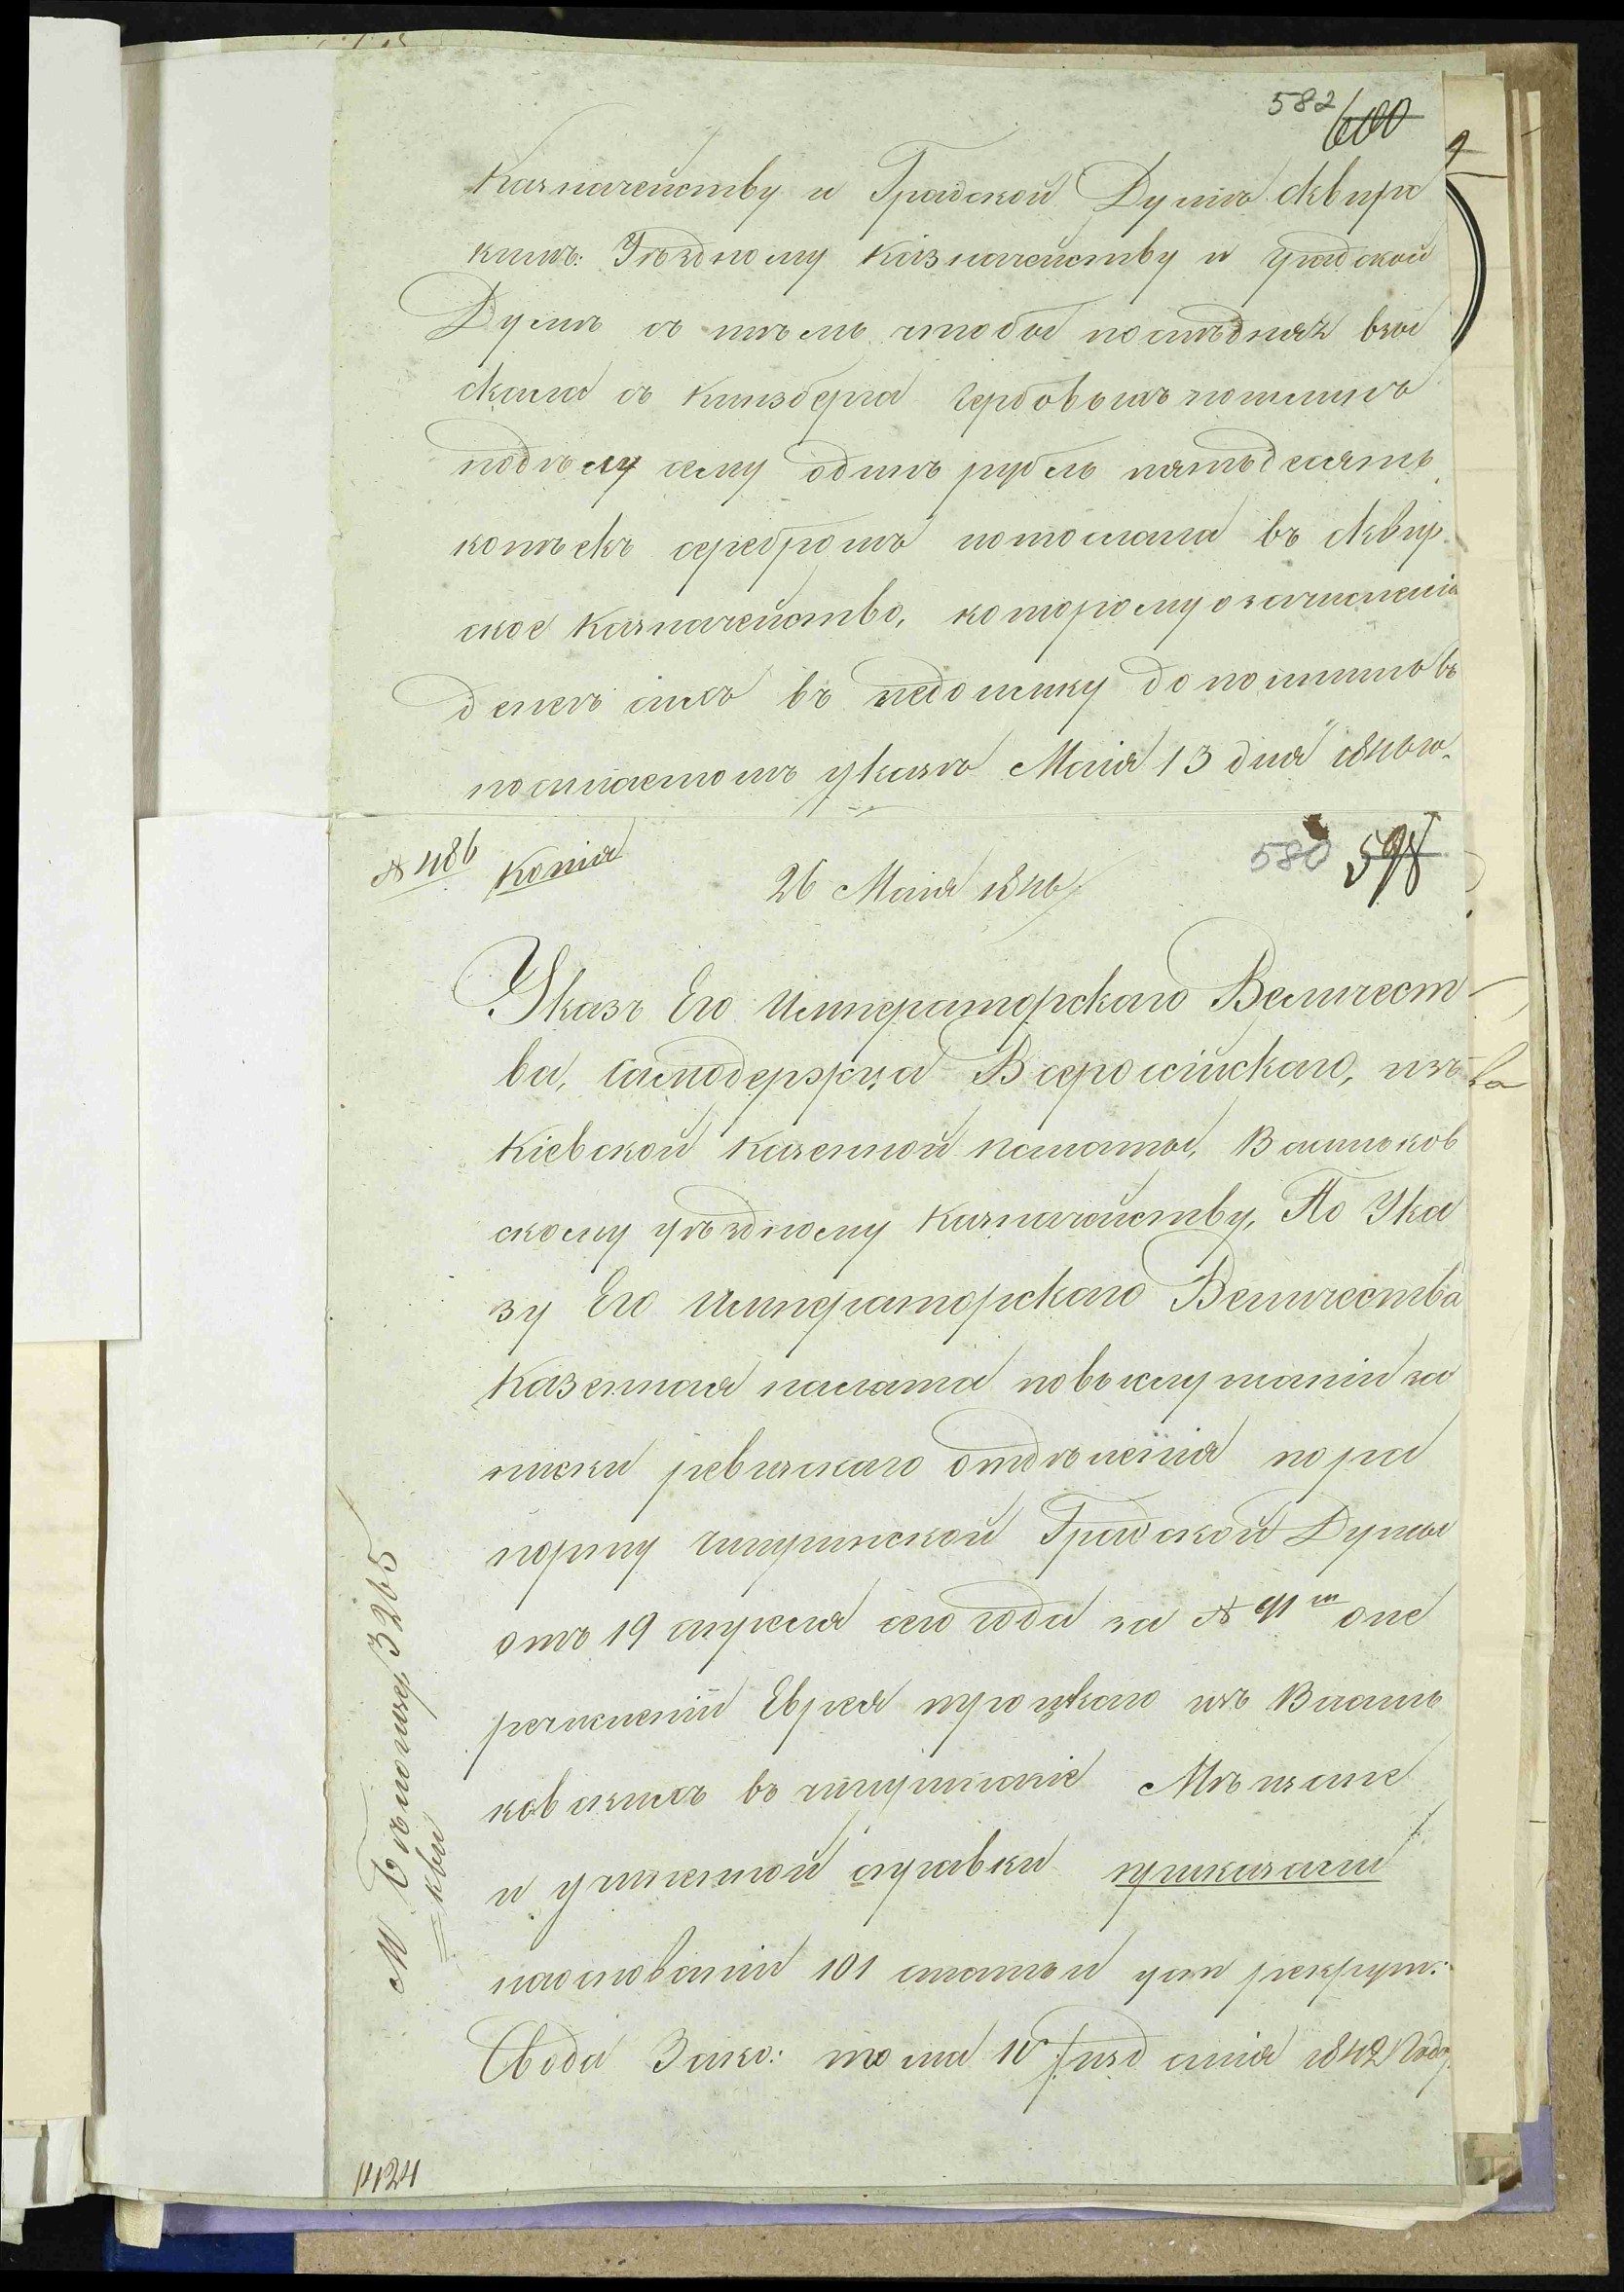 582 600
Казначейству и Градской Думѣ Сквирс
кимъ: Уѣздному Казначейству и градской
Думѣ съ тѣмъ чтобы послѣдняя взы
скала съ Кинзберга гербовыхъ пошлинъ
подѣлу сему одинъ рубль пятьдесятъ
копѣекъ серебромъ иотослала въ Сквир
ское Казначейство, которому озачисленіи
денегъ сихъ въ недоимку дополнить въ
посылаемомъ указѣ Маія 13 дня 1846 го.
№ 486 Копія
580 598
26 Маія 1846
Указъ Его Императорскаго Величест
ва, Самодержца Всероссійскаго, изъ
Кіевской Казенной палаты, Васильков
скому уѣздному Казначейству, По Ука
зу Его Императорскаго Величества
Казенная палата повыслушаніи за
писки ревизскаго отдѣленія пора
порту Чигиринской Градской Думы
отъ 19 апреля сего года за № 911 опе
речисленіи Еврея Троцкаго изъ Василь
ковскихъ въ чигиринскіе Мѣщане
и учиненной справки приказали
наоснованіи 101 статьи уст рекрут:
Свода Зако: тома 10 изданія 1842 году
3265
1424